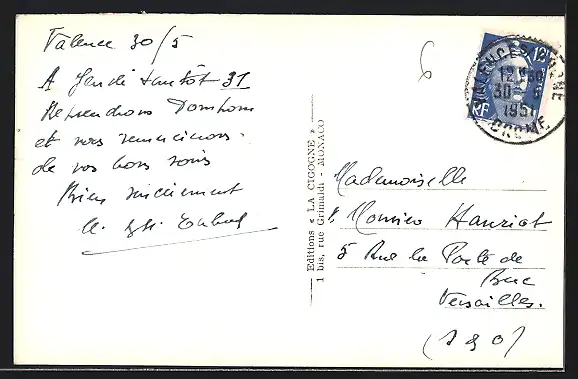 Valence 30/5
A Jeudi tantôt 31
Reprendrons Dombons
et vous remercions
de vos bons soins
Bien sincèrement
Editions « LA CIGOGNE »
1 bis, rue Grimaldi - MONACO
6
12F
RF
30 - 5
1951
DROME
Mademoiselle
& Monsieur Hanriot
5 Rue de la Porte de
Buc
Versailles.
(S & O)